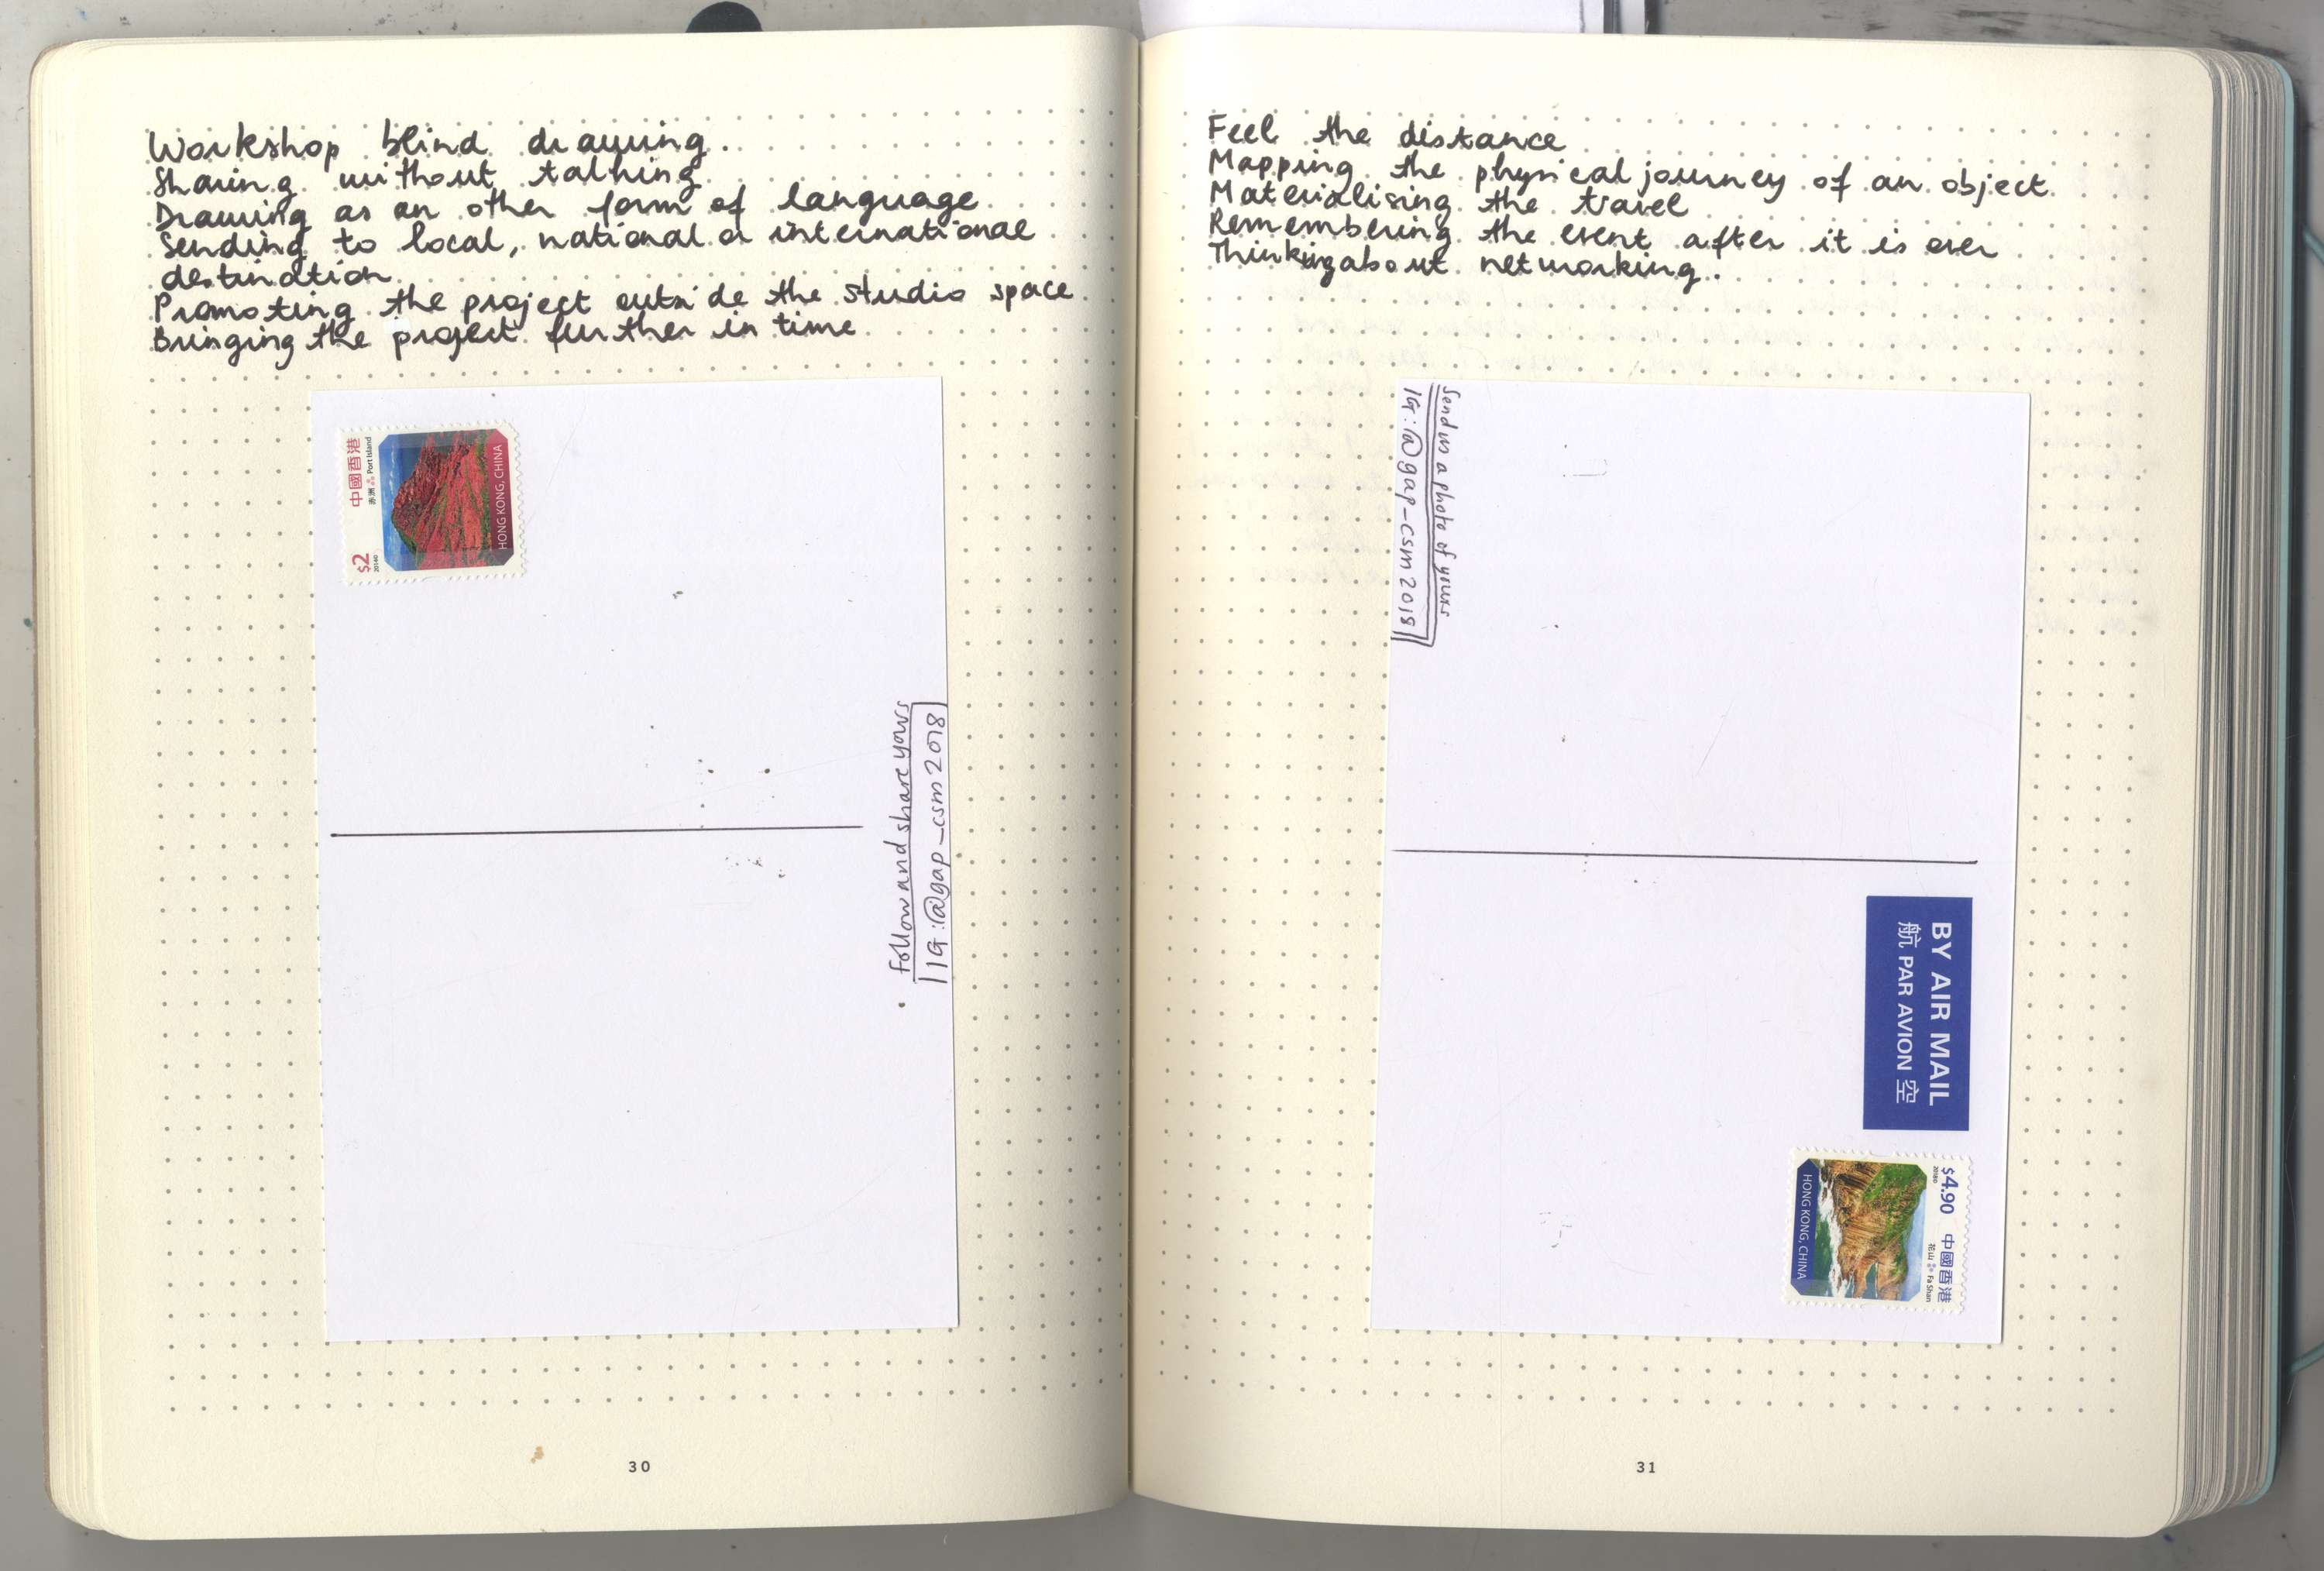 Workshop blind drawing.
Sharing without talking
Drawing as an other form of language
Sending to local, national or international
destination
Promoting the project outside the studio space
Bringing the project further in time
中國香港
赤洲 Port Island
$2
HONG KONG, CHINA
Follow and share yours
IG:@gap_csm2018
30
Feel the distance
Mapping the physical journey of an object
Materialising the travel
Remembering the event after it is over
Thinking about networking.
Send us a photo of yours
IG:@gap_csm2018
BY AIR MAIL
航 PAR AVION 空
$4.90 中國香港
花山 Fa Shan
HONG KONG, CHINA
31